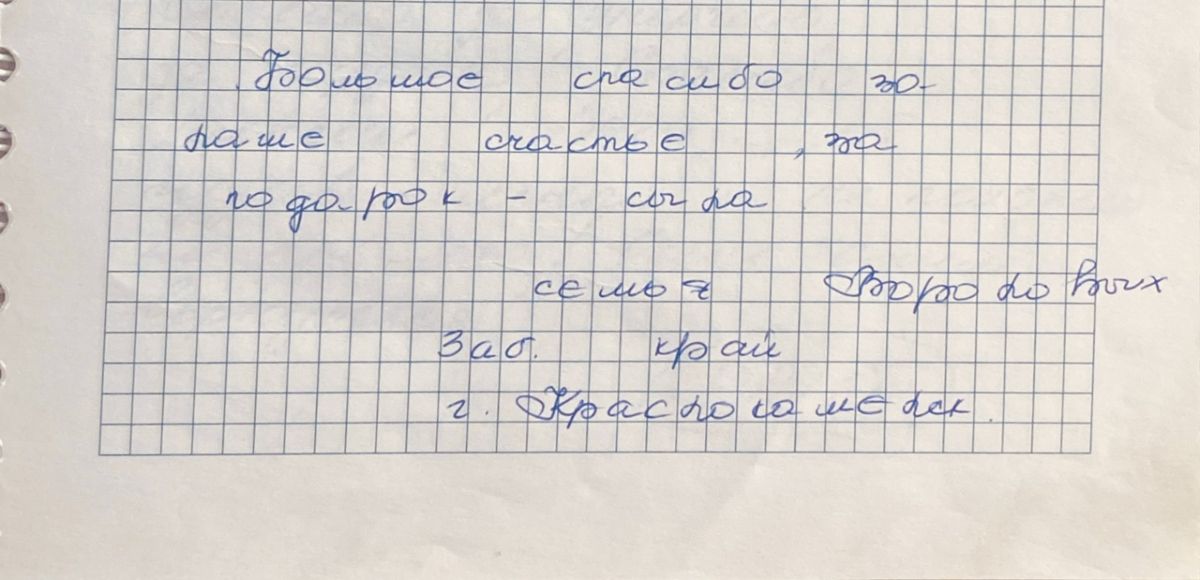 Большое спасибо за
наше счастье, за
подарок - сына
семья
Заб. край
г. Краснокаменск.